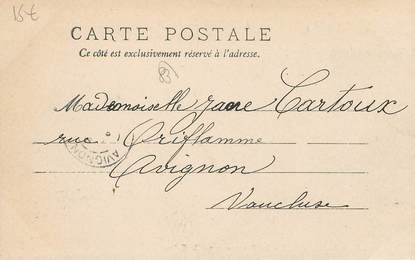 15€
CARTE POSTALE
Ce côté est exclusivement réservé à l'adresse.
Mademoiselle Cartoux
rue Oriflamme
Avignon
Vaucluse
AVIGNON